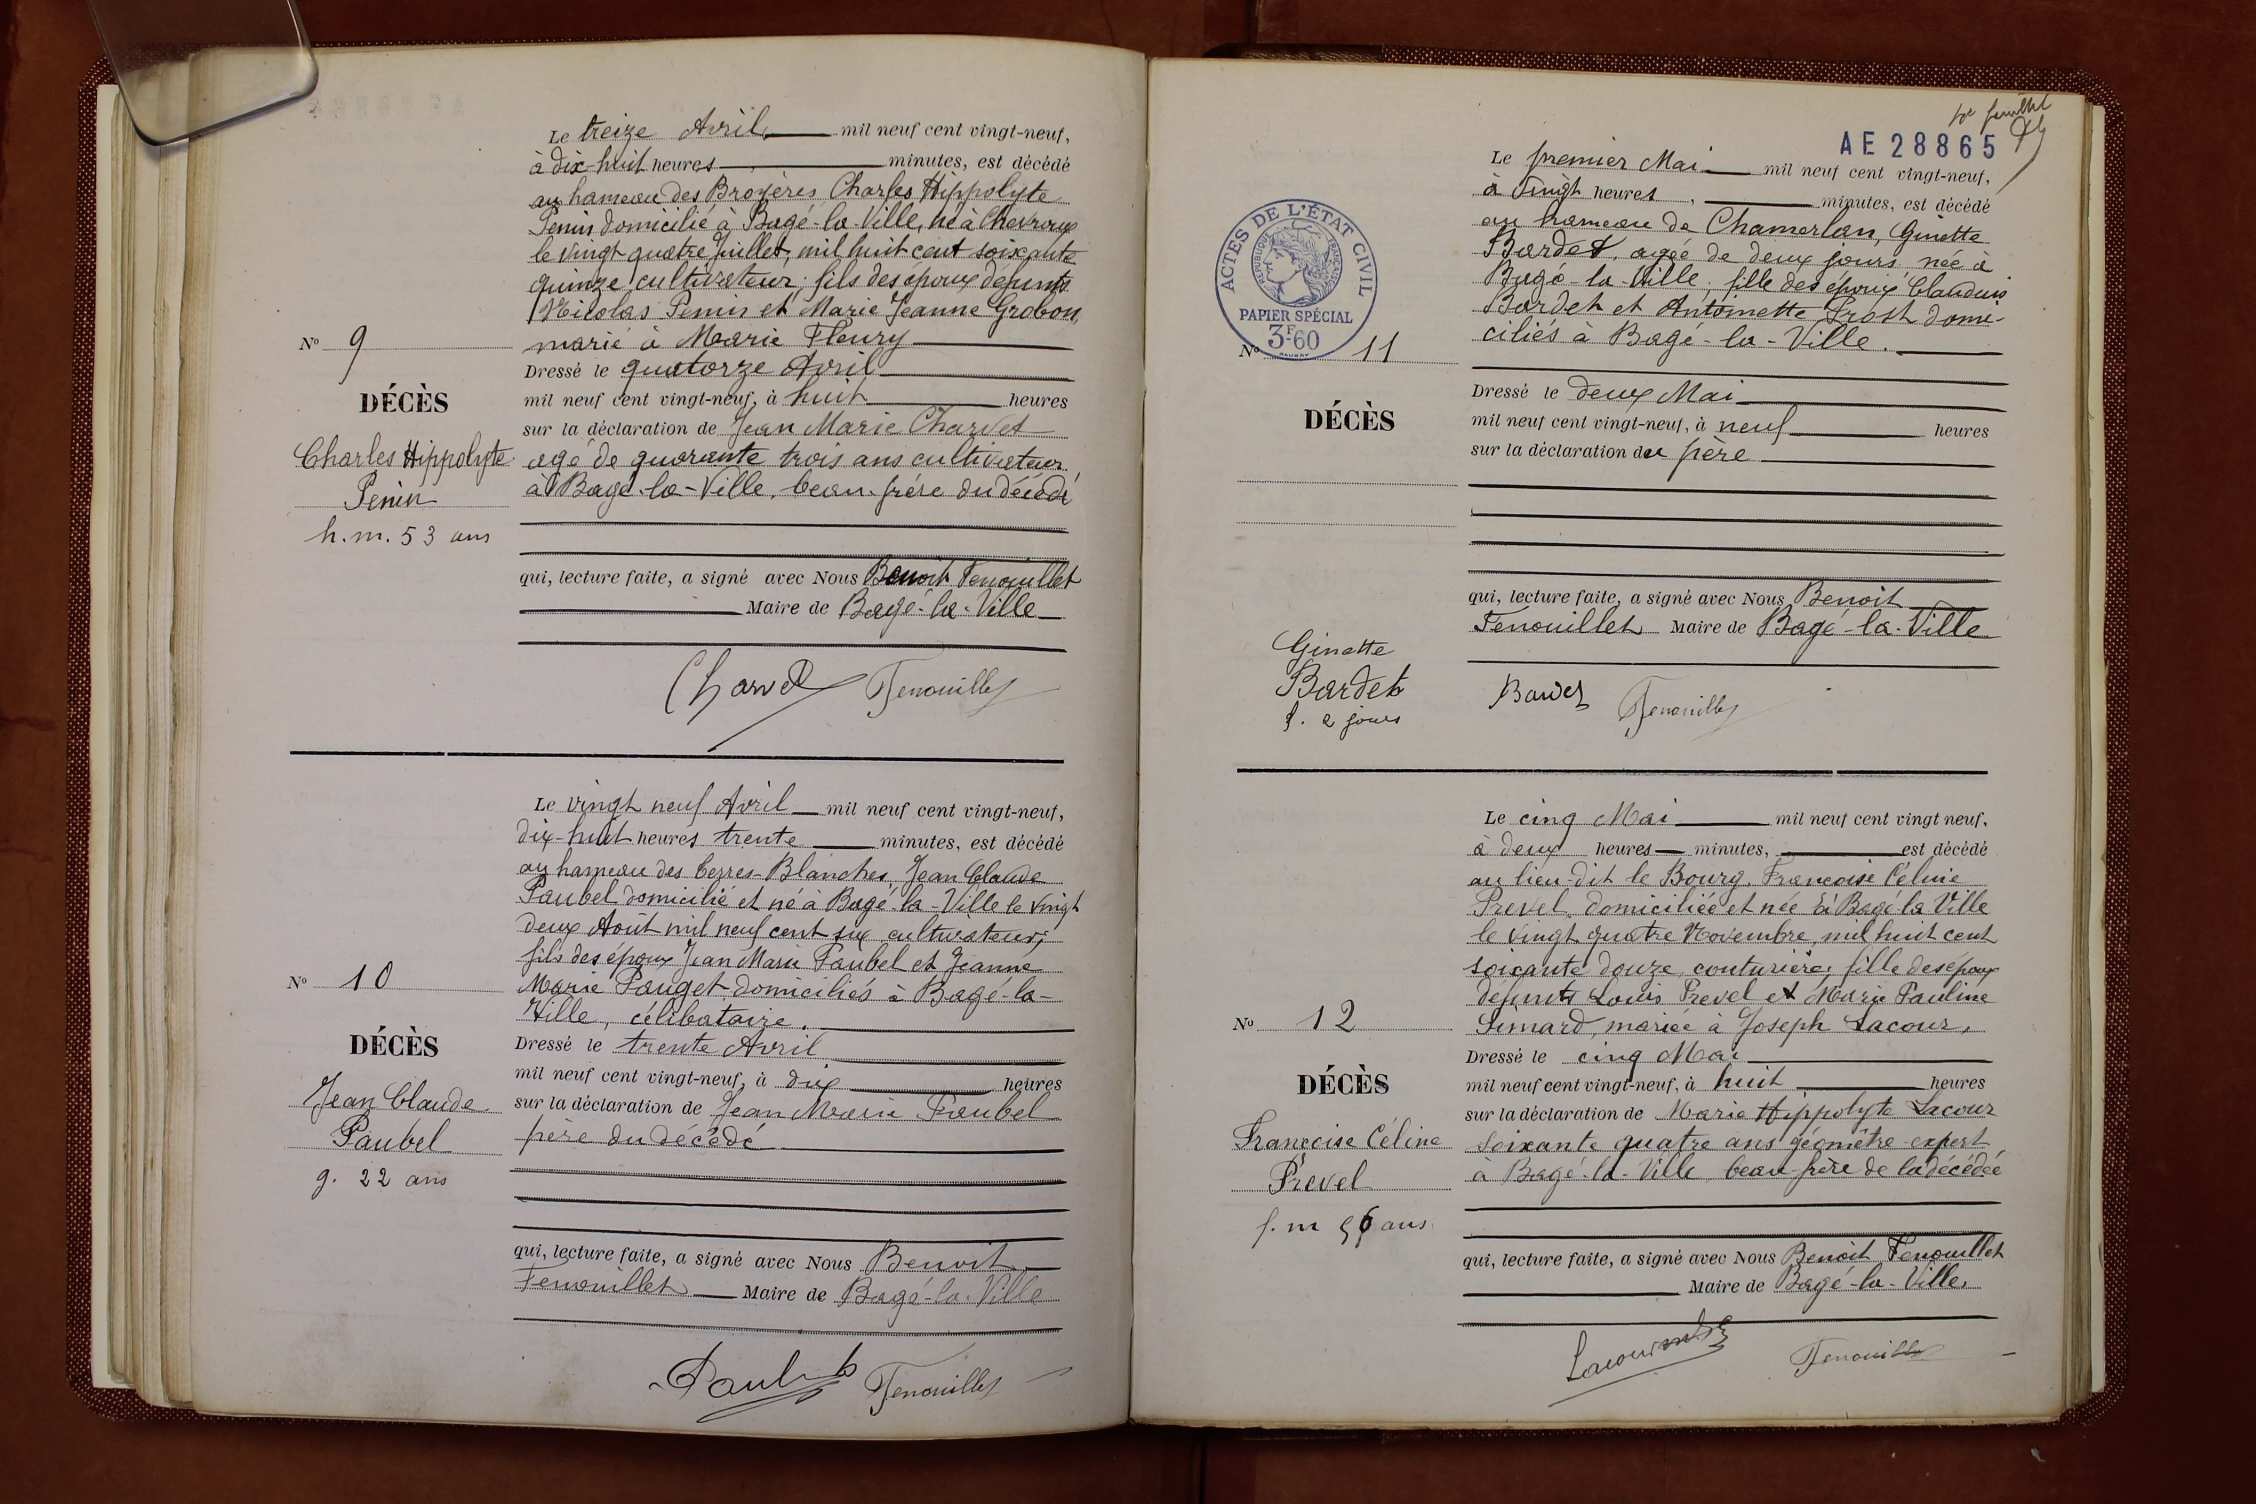 Le treize Avril mil neuf cent vingt-neuf,
à dix-huit heures minutes, est décédé
au hameau des Broyères Charles Hippolyte
Penin domicilié à Bagé-la-Ville, né à Chevroux
le vingt quatre Juillet mil huit cent soixante
quinze cultivateur, fils des époux défunts
Nicolas Penin et Marie Jeanne Grobon
marié à Marie Fleury
Dressé le quatorze Avril
mil neuf cent vingt-neuf, à huit heures
sur la déclaration de Jean Marie Charvet
agé de quarante trois ans cultivateur
à Bagé-la-Ville, beau-frère du décédé
qui, lecture faite, a signé avec Nous Benoit Fenouillet
Maire de Bagé-la-Ville
Charvet Fenouillet
No 9
DÉCÈS
Charles Hippolyte
Penin
h.m. 53 ans
Le vingt neuf Avril mil neuf cent vingt-neuf,
dix-huit heures trente minutes, est décédé
au hameau des Cerres-Blanches Jean Claude
Paubel domicilié et né à Bagé-la-Ville le vingt
deux Août mil neuf cent six cultivateur,
fils des époux Jean Marie Paubel et Jeanne
Marie Pauget domiciliés à Bagé-la-
Ville, célibataire.
Dressé le trente Avril
mil neuf cent vingt-neuf, à dix heures
sur la déclaration de Jean Marie Paubel
père du décédé
qui, lecture faite, a signé avec Nous Benoit
Fenouillet Maire de Bagé-la-Ville
Paubel Fenouillet
No 10
DÉCÈS
Jean Claude
Paubel
g. 22 ans
feuillet
AE 28865
ACTES DE L'ÉTAT CIVIL
RÉPUBLIQUE FRANÇAISE
PAPIER SPÉCIAL
3F60
Le premier Mai mil neuf cent vingt-neuf,
à vingt heures, minutes, est décédé
au hameau de Chamerlan, Ginette
Bardet, agée de deux jours née à
Bagé-la-Ville, fille des époux Claudius
Bardet et Antoinette Frost domi-
ciliés à Bagé-la-Ville.
Dressé le deux Mai
mil neuf cent vingt-neuf, à neuf heures
sur la déclaration du père
qui, lecture faite, a signé avec Nous Benoit
Fenouillet Maire de Bagé-la-Ville
Bardet Fenouillet
No 11
DÉCÈS
Ginette
Bardet
f. 2 jours
Le cinq Mai mil neuf cent vingt neuf,
à deux heures minutes, est décédé
au lieu-dit le Bourg, Françoise Céline
Prevel domiciliée et née à Bagé la Ville
le vingt quatre Novembre mil huit cent
soixante douze, couturière, fille des époux
défunts Louis Prevel et Marie Pauline
Simard, mariée à Joseph Lacour,
Dressé le cinq Mai
mil neuf cent vingt-neuf, à huit heures
sur la déclaration de Marie Hippolyte Lacour
soixante quatre ans géomètre-expert
à Bagé-la-Ville beau-frère de la décédée
qui, lecture faite, a signé avec Nous Benoit Fenouillet
Maire de Bagé-la-Ville,
Fenouillet
No 12
DÉCÈS
Françoise Céline
Prevel
f. m 56 ans